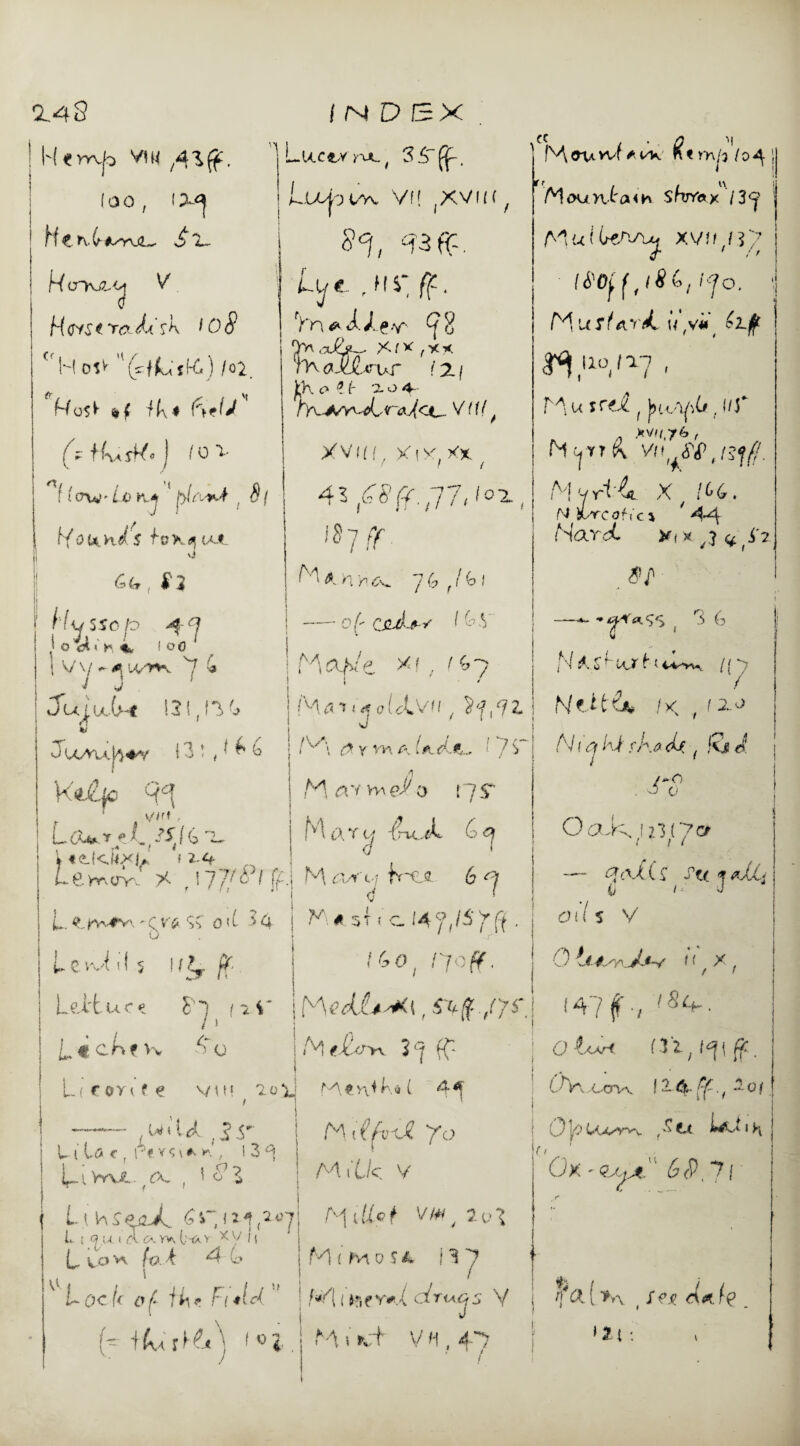 248 INDEX
Hemp VIII, 43ff.
100, 129
Henbane 52
Honey V
Horseradish 108
"Host" (= thistle) 102.
"Host of the Field"
(= thistle) 102
"How-long" plant, 81
Hound's tongue
66, 83
Hyssop 49
Iodine 100
Ivy-gum 76
Jujube 131, 136
Juniper 131, 166
Kelp 99
Laurel, VIII, 35, 162
124
Lemon X, 177, 181 ff.
Lemon-grass oil 34
Lentils 115 ff.
Lettuce 87, 125
Lichen 80
Licorice VIII 201
—— , Wild, 35
Lilac, Persian, 139
Lime, 183
Linseed, 65, 129, 207
Liquidambar XVII
Lion fat 46
"Lock of the Field"
(= thistle) 102.
Lucerne, 35 ff.
Lupin VII, XVIII,
89, 93 ff.
Lye, 115, ff.
Madder 98
Male XIX, XX
Mallow 121
204
Mandrake VIII,
XVIII, XIX, XX,
43, 68 ff., 77, 102,
187 ff
Manna 76, 161
—— of cedar 165
Maple XI, 167
Marigold VII, 89, 92
Marmalade 175
Marmelo 175
Mary bud 69
Mary tree 69
Mastic 149, 157 ff.
160, 170 ff.
Medlar, 54 ff., 175.
Melon 39 ff
Menthol 49
Milfoil 70
Milk V
Millet VIII, 203
Mimosa 137
Mineral drugs V
Mint VII, 47
"Mountain Hemp" 104
"Mountain shrax" 139
Mulberry XVII, 137
180 ff, 186, 190.
Mustard II, VII, 62 ff
39, 120, 127,
Mustel, 115
XVII, 76,
Myrrh VII, 88, 139 ff.
Myrtle X, 166.
Narcotics 44
Nard XIX, 34, 52
81
—— -grass, 36
Nasturtium 117
Nettle IX, 120
Nightshade, Red
50
Oak, 123, 170
— galls see galls
Oils V
Oleander II, X,
147 ff., 184.
Olive 132, 191 ff.
Onion 124 ff., 201
Opium, See Latin
"Ox-eye" 68, 71
Palm, see date.
121: